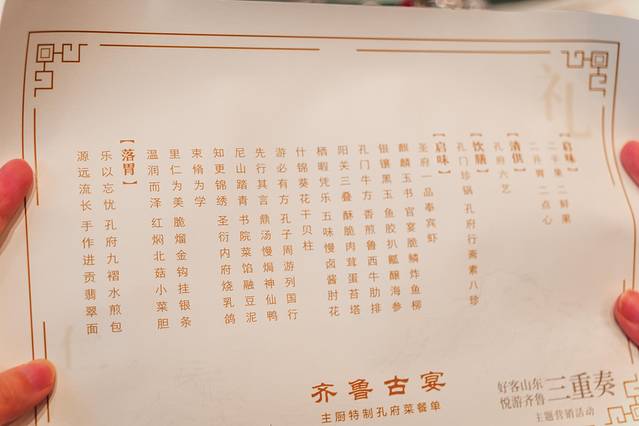 礼
【启味】
二干果 二鲜果
二点心
【清供】
孔府六艺
【饮膳】
孔门珍锅 孔府行斋素八珍
【启味】
圣府一品奉宾虾
麒麟玉书 官宴脆鳞炸鱼柳
银镶黑玉 鱼胶扒瓤酿海参
孔门牛方 香煎鲁西牛肋排
阳关三叠 酥脆肉茸蛋苔塔
栖暇凭乐 五味慢卤酱肘花
什锦葵花干贝柱
游必有方 孔子周游列国行
先行其言 鼎汤慢焗神仙鸭
尼山踏青 书院菜馅融豆泥
知更锦绣 圣衍内府烧乳鸽
束脩为学
里仁为美 脆熘金钩挂银条
温润而泽 红焖北菇小菜胆
【落胃】
乐以忘忧 孔府九褶水煎包
源远流长 手作进贡翡翠面
齐鲁古宴
主厨特制孔府菜餐单
好客山东
悦游齐鲁
三重奏
主题营销活动